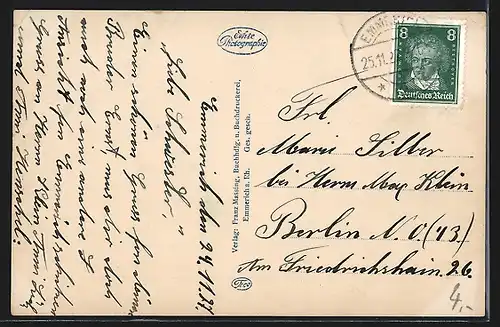 Emmerich den 24.11.27
"Liebe Schwester"
Einen schönen Gruss
Bruder Ernst, muss dir doch
auch mal eine andere
Ansicht von Emmerich
Gruss an Herrn Klein Frau
und
Echte
Photographie
Verlag: Franz Massing, Buchhdlg. u. Buchdruckerei,
Emmerich a. Rh. Ges. gesch.
EMMERICH
25.11.2
8 8
Deutsches Reich
Frl.
Marie Silber
bei Herrn Max Klein
Berlin N.O. (43)
Am Friedrichshain 26.
4,-